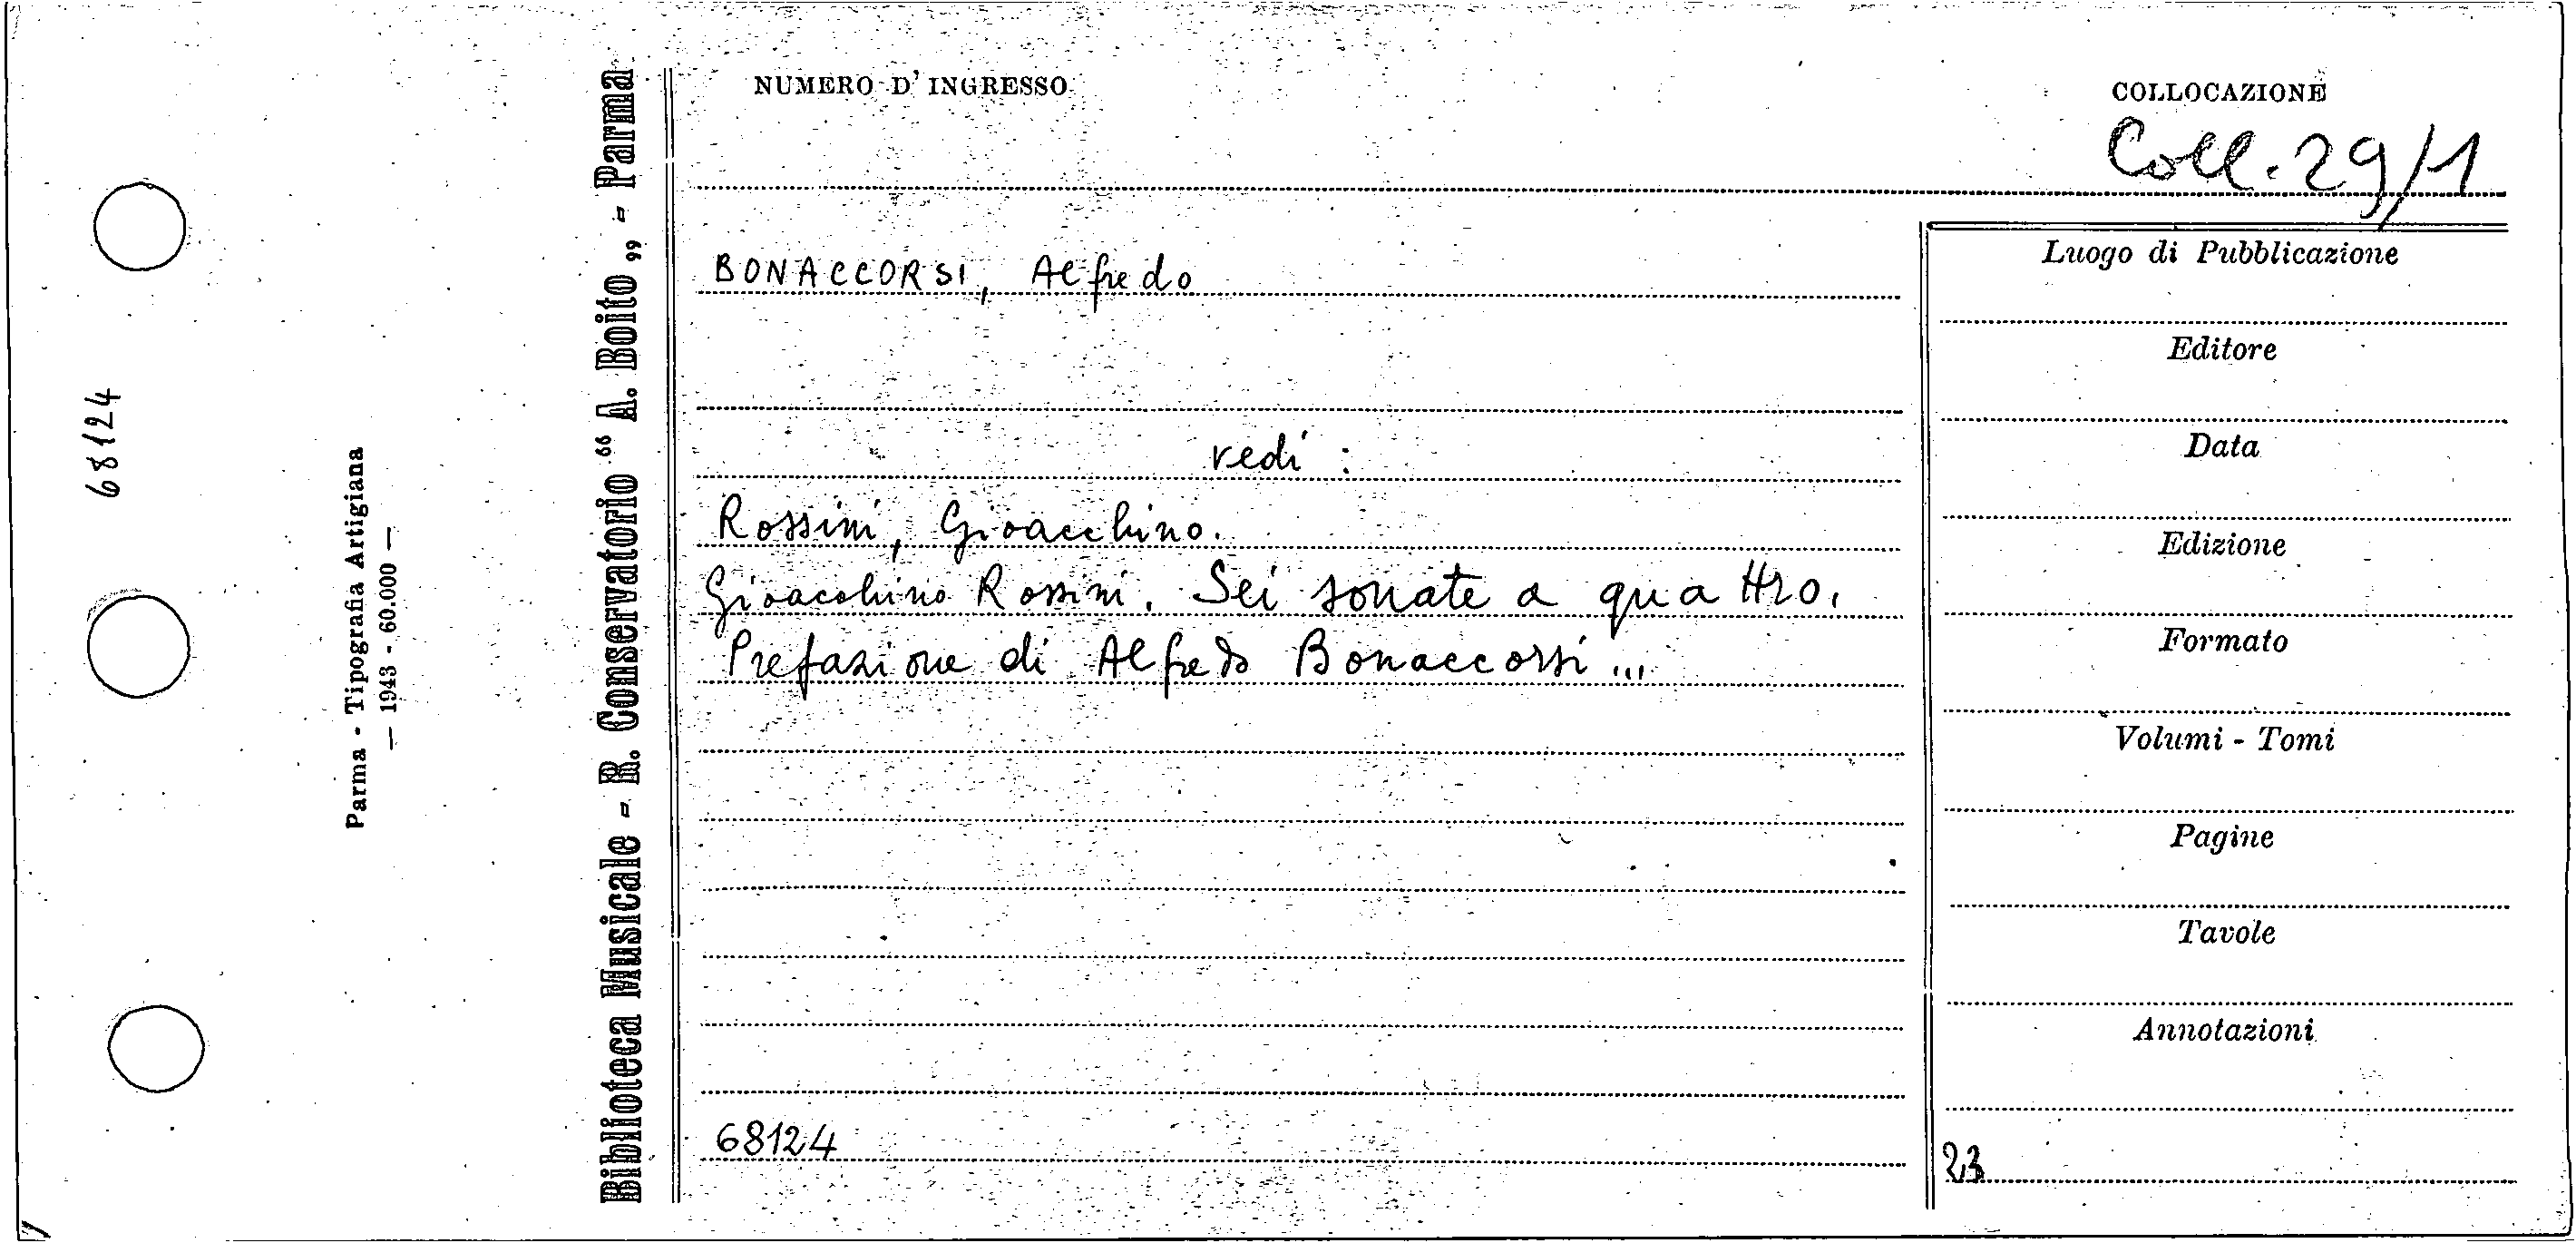 68124
Parma - Tipografia Artigiana
— 1943 - 60.000 —
Biblioteca Musicale - R. Conservatorio “ A. Boito „ - Parma
NUMERO D' INGRESSO
COLLOCAZIONE
Coll. 29/1
BONACCORSI, Alfredo
vedi :
Rossini, Gioacchino.
Gioacchino Rossini. Sei sonate a quattro.
Prefazione di Alfredo Bonaccorsi ...
68124
Luogo di Pubblicazione
Editore
Data
Edizione
Formato
Volumi - Tomi
Pagine
Tavole
Annotazioni
23